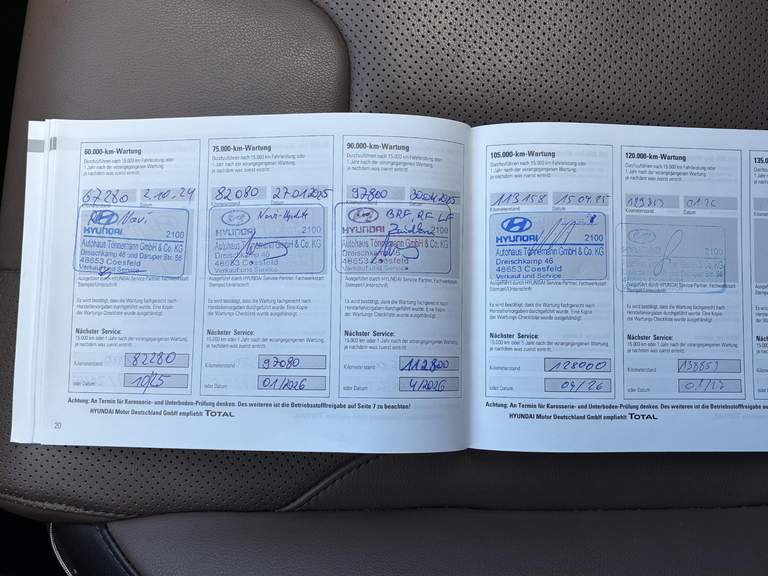 60.000-km-Wartung
Durchzuführen nach 15.000 km Fahrleistung oder
1 Jahr nach der vorangegangenen Wartung,
je nachdem was zuerst eintritt:
67280 2.10.24
Kilometerstand Datum
Navi
HYUNDAI 2100
Autohaus Tönnemann GmbH & Co. KG
Dreischkamp 46 und Daruper Str. 56
48653 Coesfeld
Verkauf und Service
Ausgeführt durch HYUNDAI Service-Partner, Fachwerkstatt
Stempel/Unterschrift
Es wird bestätigt, dass die Wartung fachgerecht nach
Herstellervorgaben durchgeführt wurde. Eine Kopie
der Wartungs-Checkliste wurde ausgehändigt.
Nächster Service:
15.000 km oder 1 Jahr nach der vorangegangenen Wartung,
je nachdem was zuerst eintritt
Kilometerstand 82280
oder Datum 10/25
75.000-km-Wartung
Durchzuführen nach 15.000 km Fahrleistung oder
1 Jahr nach der vorangegangenen Wartung,
je nachdem was zuerst eintritt:
82080 27.01.2025
Kilometerstand Datum
HYUNDAI 2100
Autohaus Tönnemann GmbH & Co. KG
Dreischkamp 46
48653 Coesfeld
Verkauf und Service
Ausgeführt durch HYUNDAI Service-Partner, Fachwerkstatt
Stempel/Unterschrift
Es wird bestätigt, dass die Wartung fachgerecht nach
Herstellervorgaben durchgeführt wurde. Eine Kopie
der Wartungs-Checkliste wurde ausgehändigt.
Nächster Service:
15.000 km oder 1 Jahr nach der vorangegangenen Wartung,
je nachdem was zuerst eintritt
Kilometerstand 97080
oder Datum 01/2026
90.000-km-Wartung
Durchzuführen nach 15.000 km Fahrleistung oder
1 Jahr nach der vorangegangenen Wartung,
je nachdem was zuerst eintritt:
97800
Kilometerstand Datum
BRF, RF LF
HYUNDAI 2100
Autohaus Tönnemann GmbH & Co. KG
Dreischkamp 46
48653 Coesfeld
Verkauf und Service
Ausgeführt durch HYUNDAI Service-Partner, Fachwerkstatt
Stempel/Unterschrift
Es wird bestätigt, dass die Wartung fachgerecht nach
Herstellervorgaben durchgeführt wurde. Eine Kopie
der Wartungs-Checkliste wurde ausgehändigt.
Nächster Service:
15.000 km oder 1 Jahr nach der vorangegangenen Wartung,
je nachdem was zuerst eintritt
Kilometerstand 112800
oder Datum 4/2026
Achtung: An Termin für Karosserie- und Unterboden-Prüfung denken. Des weiteren ist die Betriebsstofffreigabe auf Seite 7 zu beachten!
HYUNDAI Motor Deutschland GmbH empfiehlt TOTAL
20
105.000-km-Wartung
Durchzuführen nach 15.000 km Fahrleistung oder
1 Jahr nach der vorangegangenen Wartung,
je nachdem was zuerst eintritt:
113158
Kilometerstand Datum
HYUNDAI 2100
Autohaus Tönnemann GmbH & Co. KG
Dreischkamp 46
48653 Coesfeld
Verkauf und Service
Ausgeführt durch HYUNDAI Service-Partner, Fachwerkstatt
Stempel/Unterschrift
Es wird bestätigt, dass die Wartung fachgerecht nach
Herstellervorgaben durchgeführt wurde. Eine Kopie
der Wartungs-Checkliste wurde ausgehändigt.
Nächster Service:
15.000 km oder 1 Jahr nach der vorangegangenen Wartung,
je nachdem was zuerst eintritt
Kilometerstand 128000
oder Datum 04/26
120.000-km-Wartung
Durchzuführen nach 15.000 km Fahrleistung oder
1 Jahr nach der vorangegangenen Wartung,
je nachdem was zuerst eintritt:
Kilometerstand Datum
2100
Ausgeführt durch HYUNDAI Service-Partner, Fachwerkstatt
Stempel/Unterschrift
Es wird bestätigt, dass die Wartung fachgerecht nach
Herstellervorgaben durchgeführt wurde. Eine Kopie
der Wartungs-Checkliste wurde ausgehändigt.
Nächster Service:
15.000 km oder 1 Jahr nach der vorangegangenen Wartung,
je nachdem was zuerst eintritt
Kilometerstand 138859
oder Datum
Achtung: An Termin für Karosserie- und Unterboden-Prüfung denken. Des weiteren ist die Betriebsstofffreigabe
HYUNDAI Motor Deutschland GmbH empfiehlt TOTAL